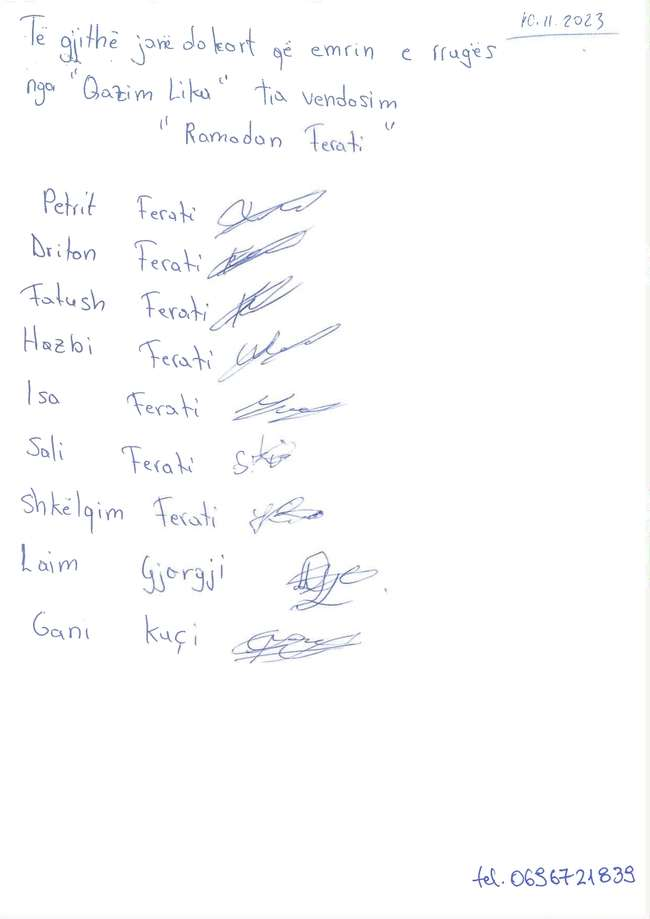 10.11.2023
Të gjithë janë dakort që emrin e rrugës
nga "Qazim Liku" tia vendosim
"Ramadan Ferati"
Petrit Ferati
Driton Ferati
Fatush Ferati
Hazbi Ferati
Isa Ferati
Sali Ferati
Shkëlqim Ferati
Laim Gjorgji
Gani Kuçi
tel. 0696721839